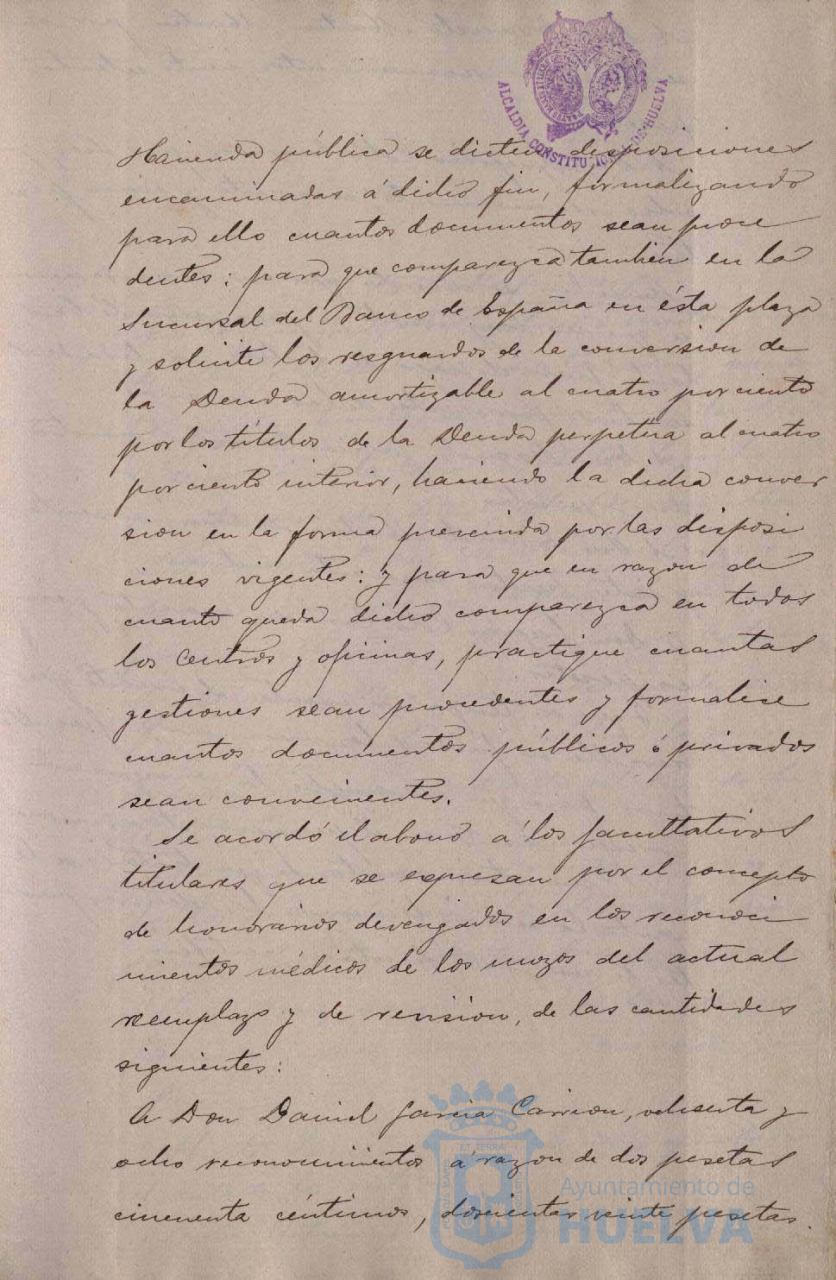 ALCALDIA CONSTITUCIONAL DE HUELVA
Hacienda pública se dicten disposiciones
encaminadas á dicho fin, formalizando
para ello cuantos documentos sean proce
dentes; para que comparezca tambien en la
Sucursal del Banco de España en ésta plaza
y solicite los resguardos de la conversion de
la Deuda amortizable al cuatro por ciento
por los títulos de la Deuda perpétua al cuatro
por ciento interior, haciendo la dicha conver
sion en la forma prescrita por las disposi
ciones vigentes: y para que en razon de
cuanto queda dicho comparezca en todos
los Centros y oficinas, practique cuantas
gestiones sean procedentes y formalice
cuantos documentos públicos ó privados
sean convenientes.
Se acordó el abono á los facultativos
titulares que se expresan por el concepto
de honorarios devengados en los reconoci
mientos médicos de los mozos del actual
reemplazo y de revision, de las cantidades
siguientes:
A Don Daniel Garcia Carrion, ochenta y
ocho reconocimientos á razon de dos pesetas
cincuenta céntimos, doscientas veinte pesetas.
Ayuntamiento de
HUELVA